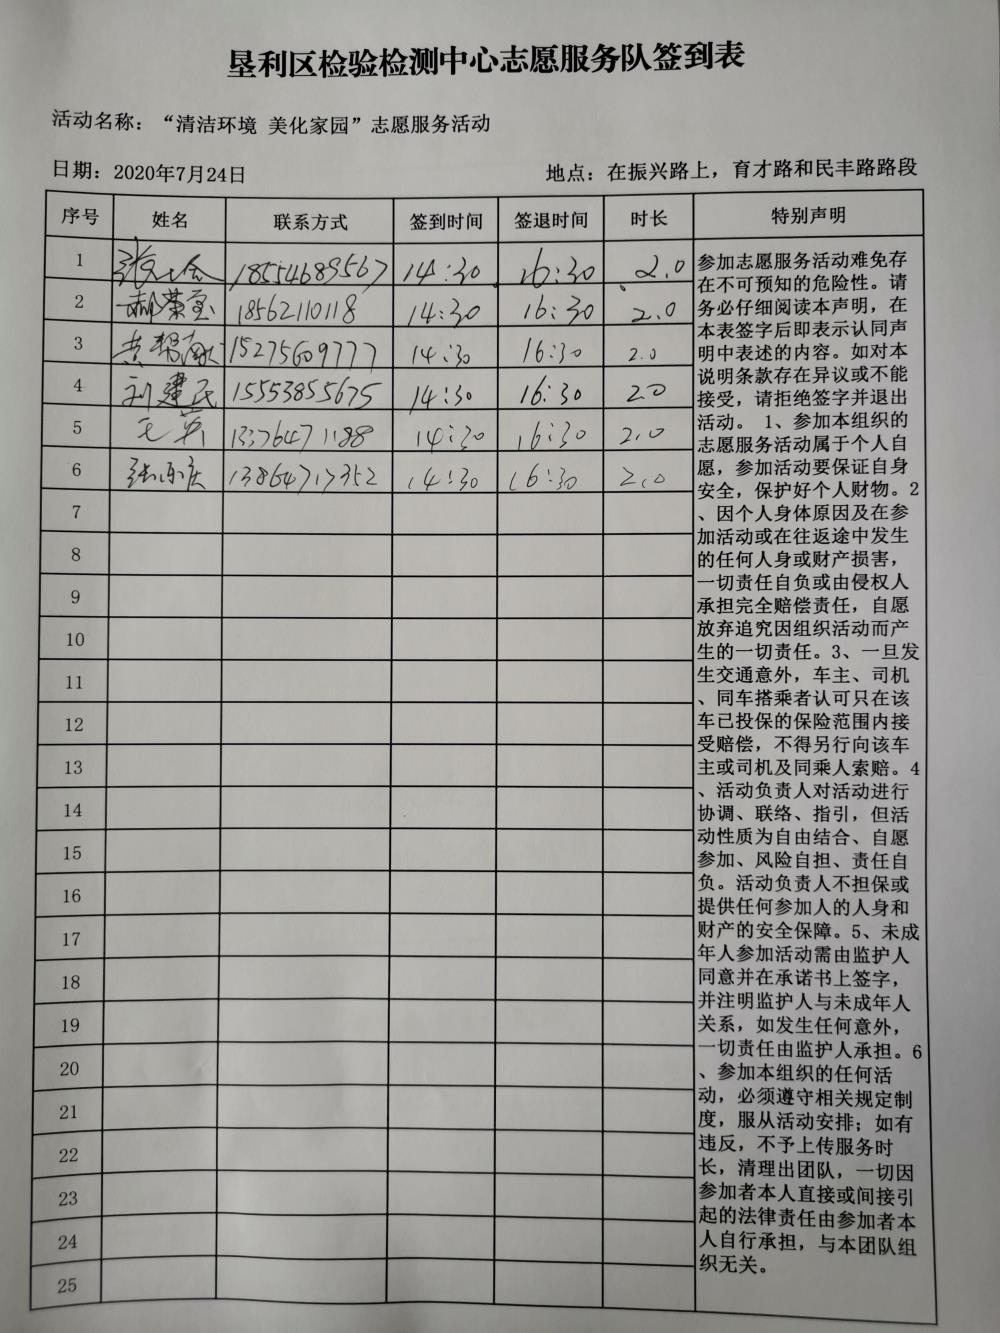 垦利区检验检测中心志愿服务队签到表
活动名称：“清洁环境 美化家园”志愿服务活动
日期：2020年7月24日 地点：在振兴路上，育才路和民丰路路段
序号 姓名 联系方式 签到时间 签退时间 时长 特别声明
1 18554689567 14:30 16:30 2.0
2 18562110118 14:30 16:30 2.0
3 15275609777 14:30 16:30 2.0
4 刘建民 15553855675 14:30 16:30 2.0
5 14:30 16:30 2.0
6 14:30 16:30 2.0
7
8
9
10
11
12
13
14
15
16
17
18
19
20
21
22
23
24
25
参加志愿服务活动难免存
在不可预知的危险性。请
务必仔细阅读本声明，在
本表签字后即表示认同声
明中表述的内容。如对本
说明条款存在异议或不能
接受，请拒绝签字并退出
活动。 1、参加本组织的
志愿服务活动属于个人自
愿，参加活动要保证自身
安全，保护好个人财物。2
、因个人身体原因及在参
加活动或在往返途中发生
的任何人身或财产损害，
一切责任自负或由侵权人
承担完全赔偿责任，自愿
放弃追究因组织活动而产
生的一切责任。3、一旦发
生交通意外，车主、司机
、同车搭乘者认可只在该
车已投保的保险范围内接
受赔偿，不得另行向该车
主或司机及同乘人索赔。4
、活动负责人对活动进行
协调、联络、指引，但活
动性质为自由结合、自愿
参加、风险自担、责任自
负。活动负责人不担保或
提供任何参加人的人身和
财产的安全保障。5、未成
年人参加活动需由监护人
同意并在承诺书上签字，
并注明监护人与未成年人
关系，如发生任何意外，
一切责任由监护人承担。6
、参加本组织的任何活
动，必须遵守相关规定制
度，服从活动安排；如有
违反，不予上传服务时
长，清理出团队，一切因
参加者本人直接或间接引
起的法律责任由参加者本
人自行承担，与本团队组
织无关。